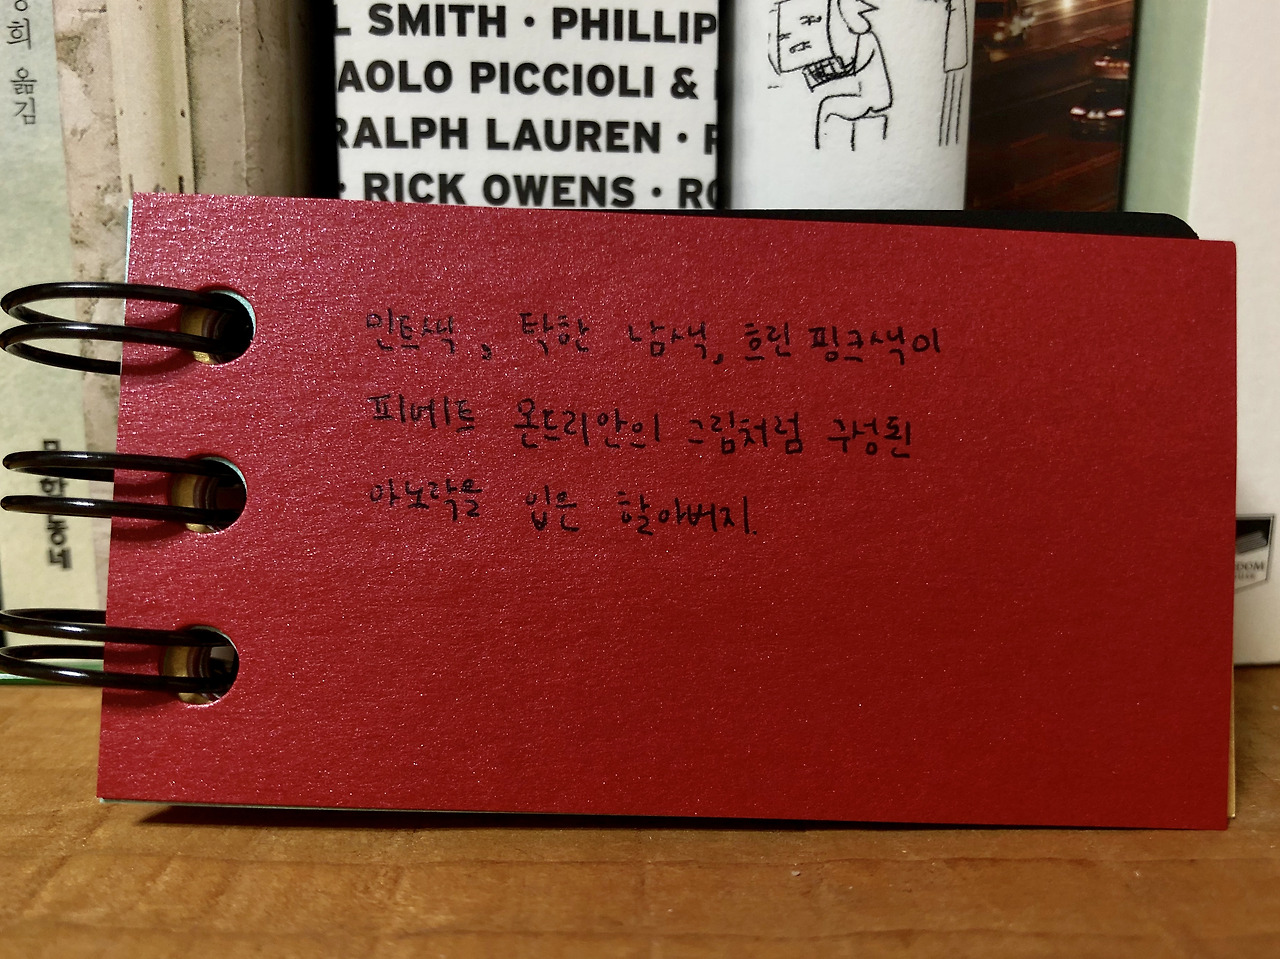 희 옮김
L SMITH · PHILLIP
AOLO PICCIOLI &
RALPH LAUREN ·
· RICK OWENS · RO
민트색, 탁한 남색, 흐린 핑크색이
피에트 몬드리안의 그림처럼 구성된
아노락을 입은 할아버지.
문학동네